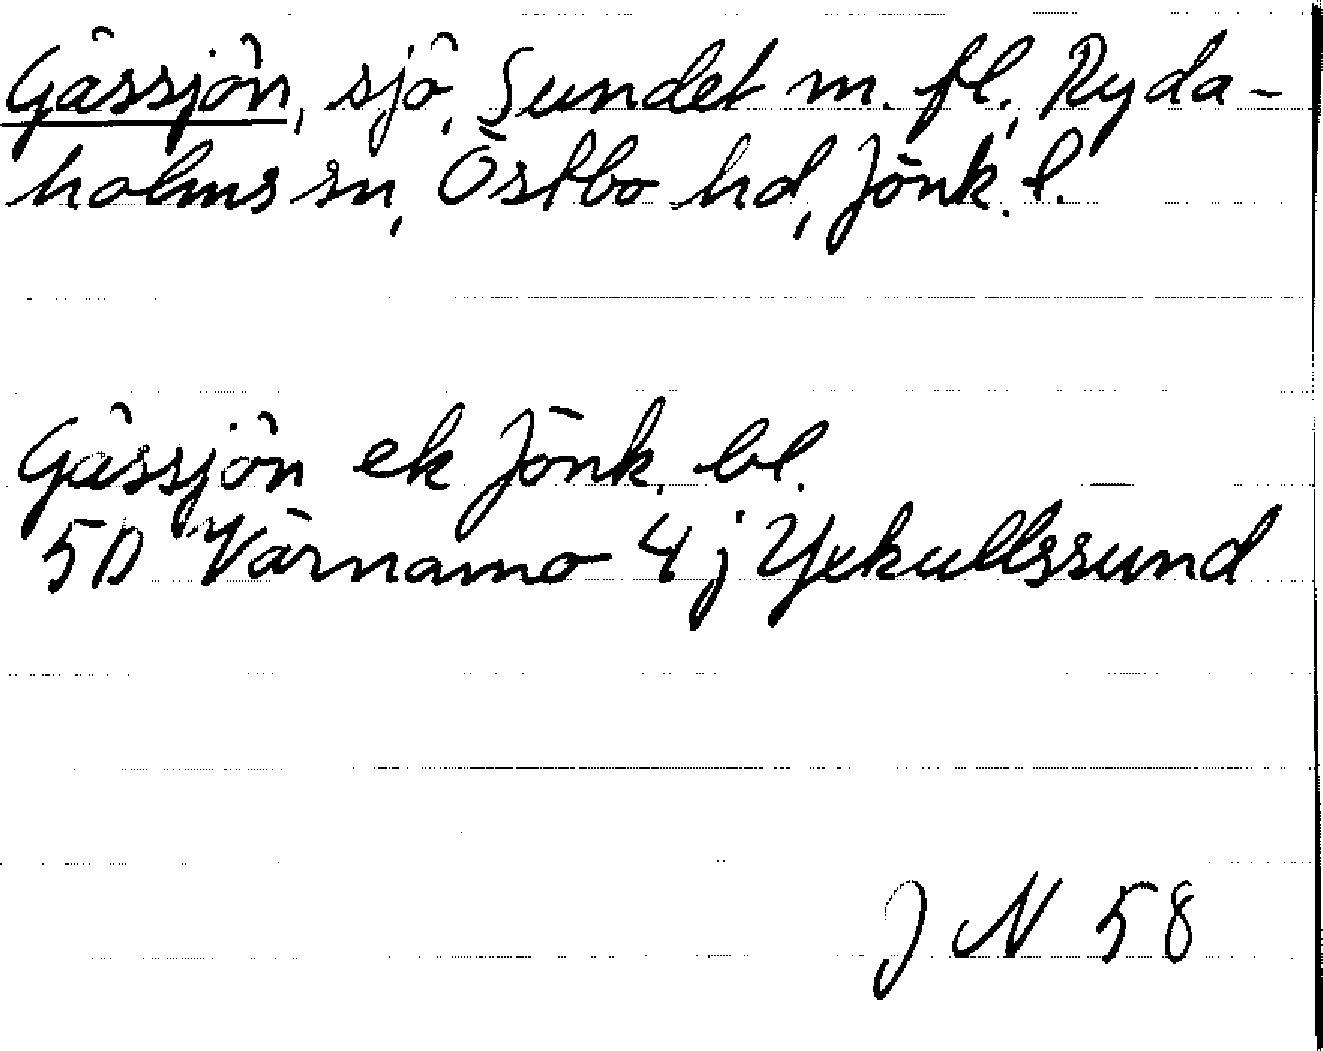 Gåssjön, sjö, Sundet m. fl., Ryda-
holms sn, Östbo hd, Jönk. l.
Gåssjön ek Jönk. bl.
5D Värnamo 4 j Yxkullssund
J N 58